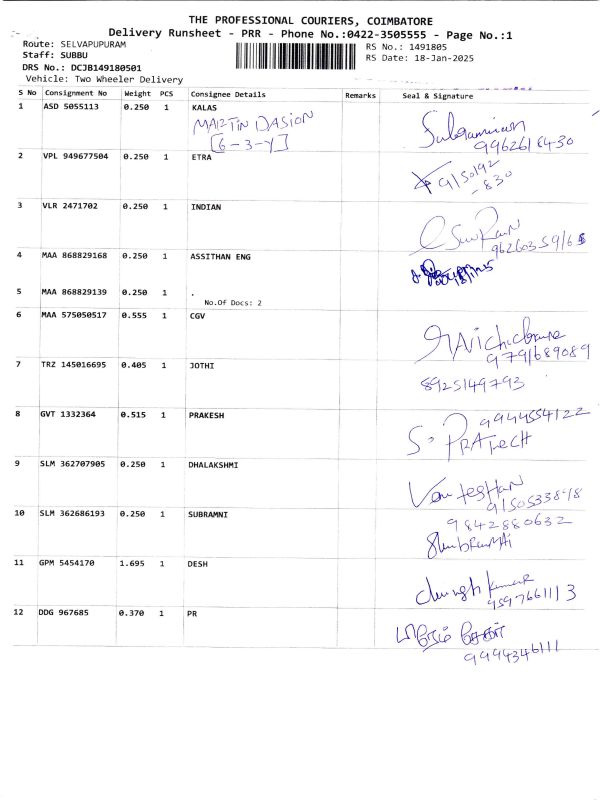 THE PROFESSIONAL COURIERS, COIMBATORE
Delivery Runsheet - PRR - Phone No.:0422-3505555 - Page No.:1
Route: SELVAPUPURAM
Staff: SUBBU
DRS No.: DCJB149180501
Vehicle: Two Wheeler Delivery
RS No.: 1491805
RS Date: 18-Jan-2025
S No Consignment No Weight PCS Consignee Details Remarks Seal & Signature
1 ASD 5055113 0.250 1 KALAS
MARTIN DASION
[6-3-Y]
9962618430
2 VPL 949677504 0.250 1 ETRA
9150192
-830
3 VLR 2471702 0.250 1 INDIAN
4 MAA 868829168 0.250 1 ASSITHAN ENG
5 MAA 868829139 0.250 1 .
No.Of Docs: 2
6 MAA 575050517 0.555 1 CGV
9791689089
7 TRZ 145016695 0.405 1 JOTHI
8925149793
8 GVT 1332364 0.515 1 PRAKESH
9944554122
S. PRATECH
9 SLM 362707905 0.250 1 DHALAKSHMI
9150533898
10 SLM 362686193 0.250 1 SUBRAMNI
9842880632
11 GPM 5454170 1.695 1 DESH
kumar
9597661113
12 DDG 967685 0.370 1 PR
9994346111